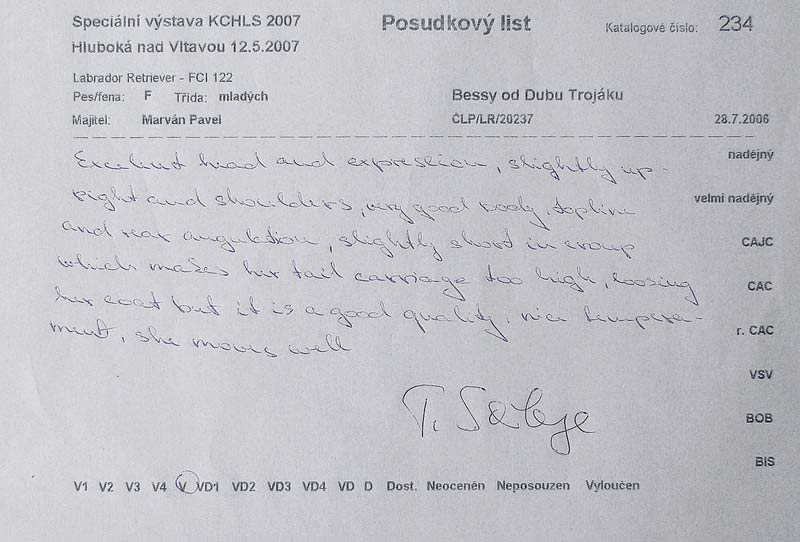 Speciální výstava KCHLS 2007 Posudkový list Katalogové číslo: 234
Hluboká nad Vltavou 12.5.2007
Labrador Retriever - FCI 122
Pes/fena: F Třída: mladých Bessy od Dubu Trojáku
Majitel: Marván Pavel ČLP/LR/20237 28.7.2006
Excelent head and expression, slightly up-
right and shoulders, very good body, topline
and rear angulation, slightly short in croup
which makes her tail carriage too high, loosing
her coat but it is a good quality, nice tempera-
ment, she moves well
nadějný
velmi nadějný
CAJC
CAC
r. CAC
VSV
BOB
BIS
T.
V1 V2 V3 V4 V VD1 VD2 VD3 VD4 VD D Dost. Neoceněn Neposouzen Vyloučen